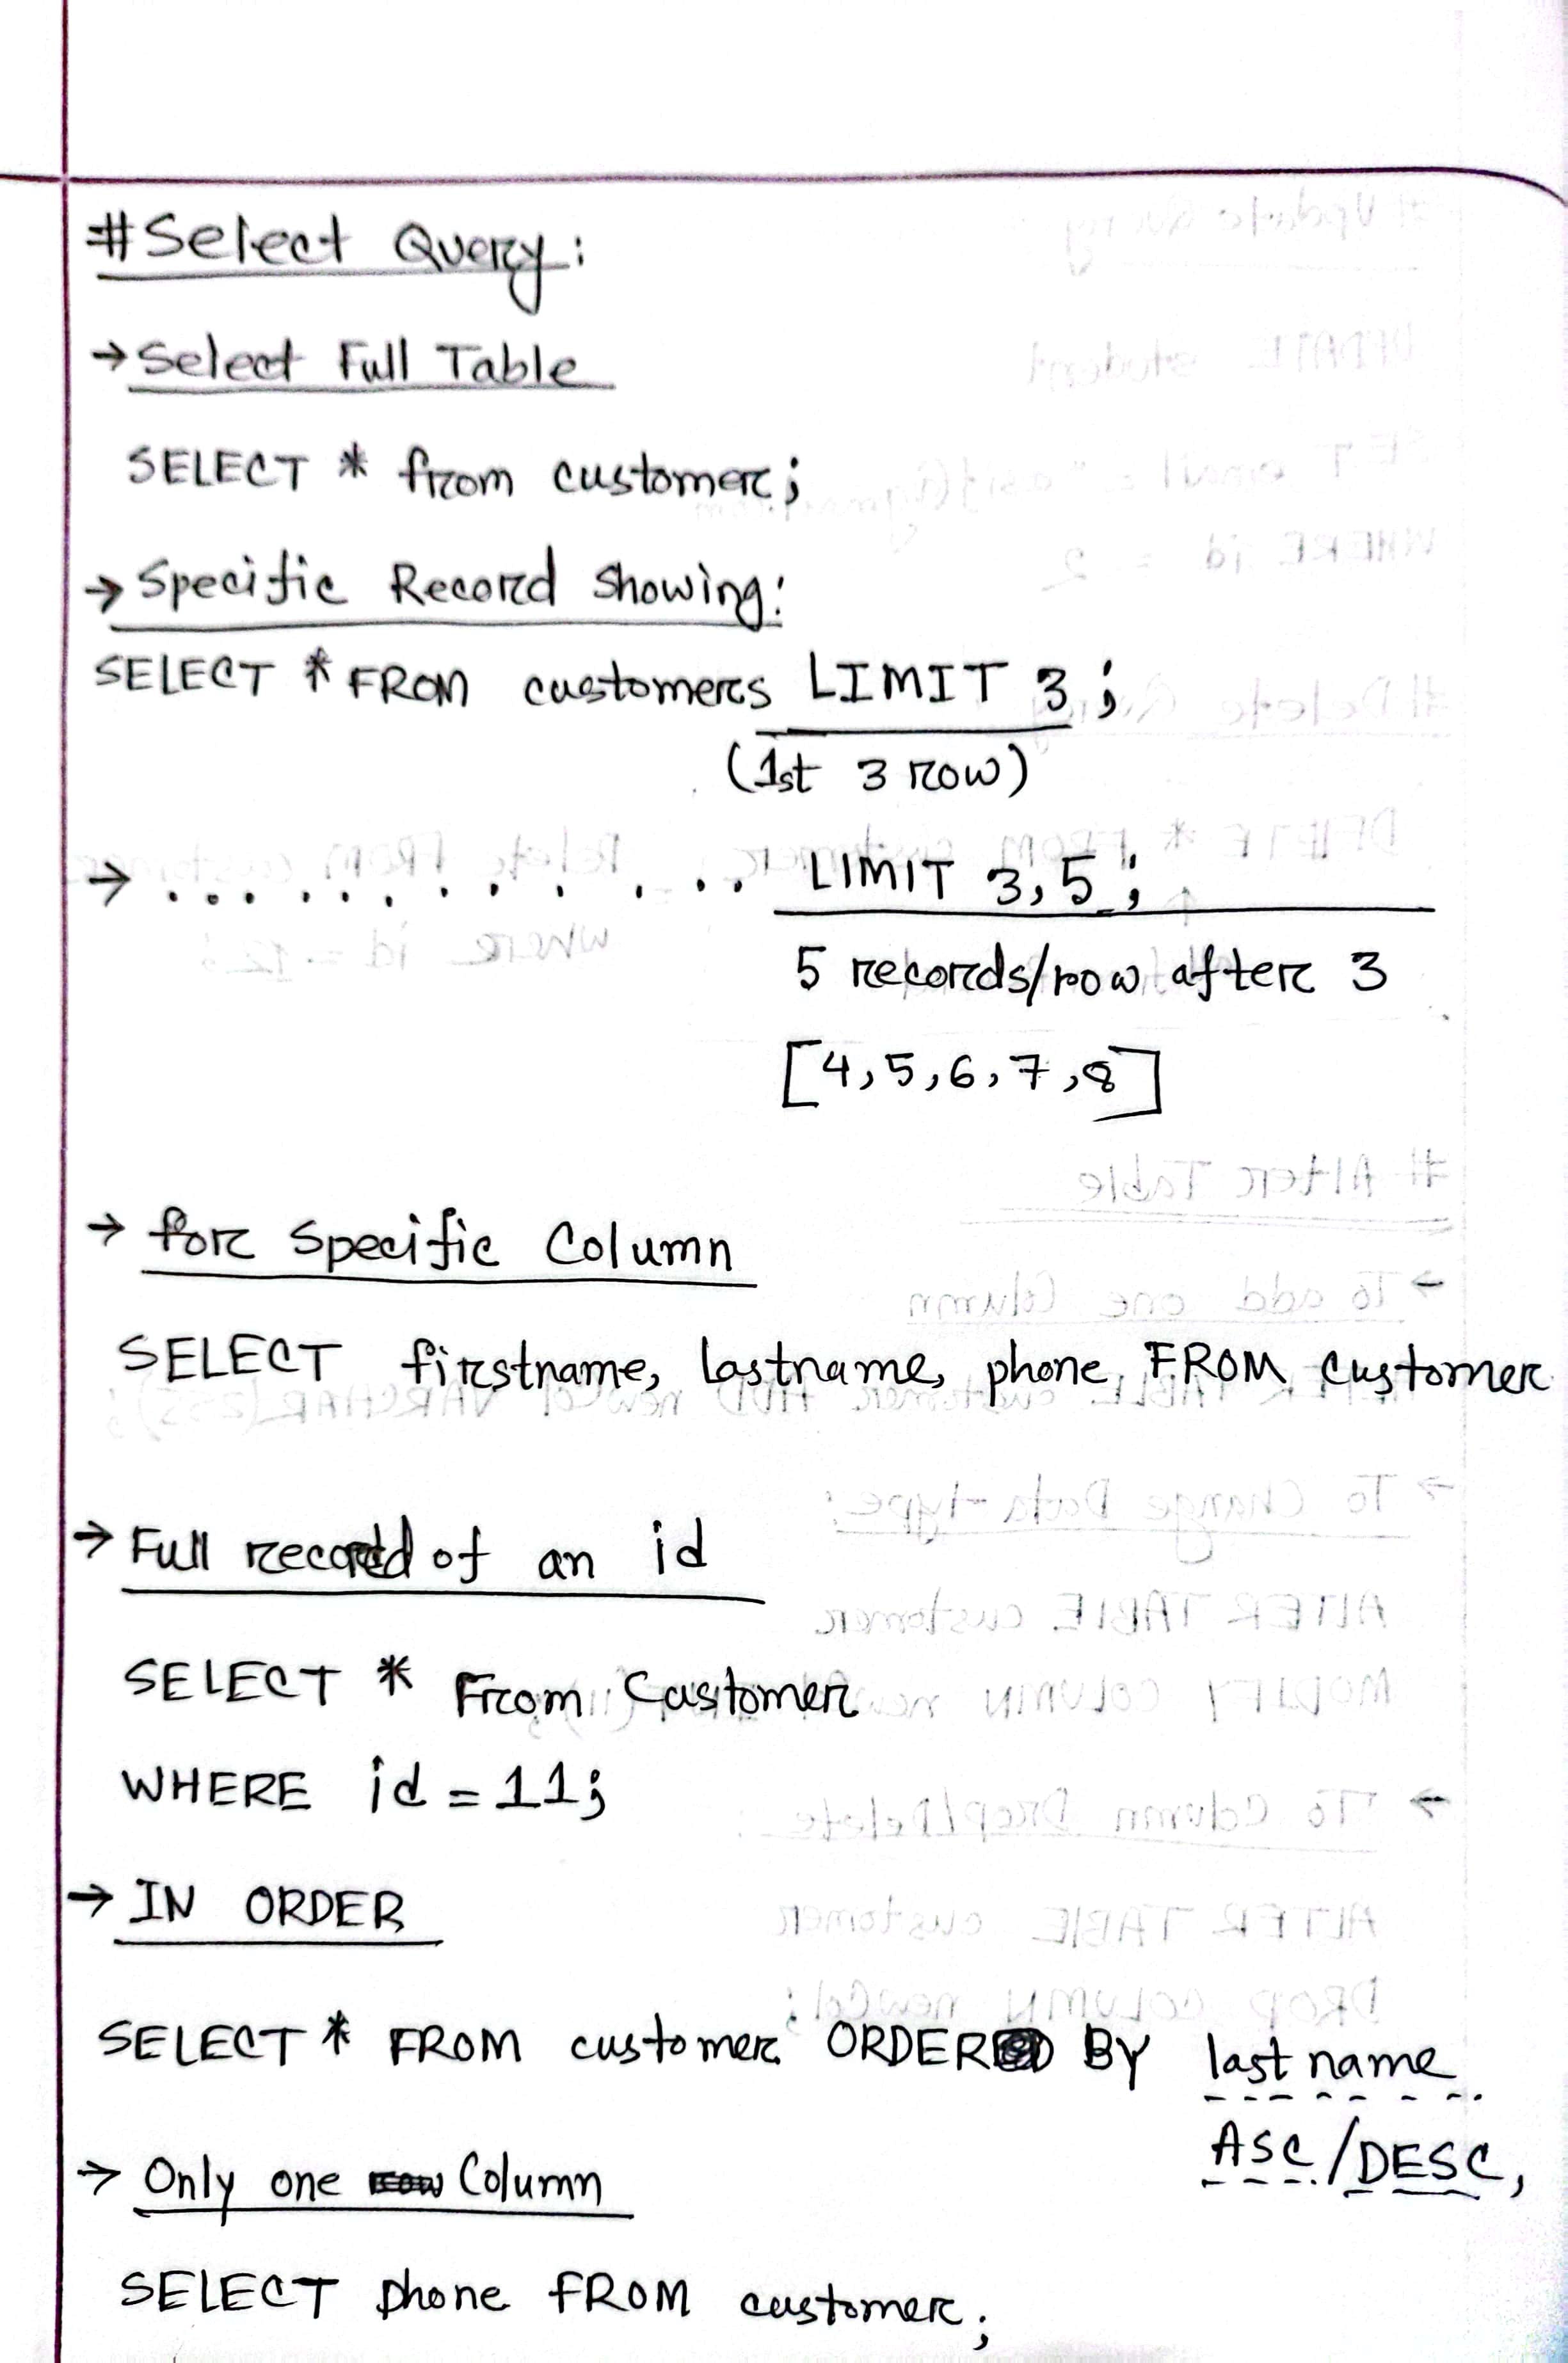 #Select Query:
→ Select Full Table
SELECT * from customer;
→ Specific Record Showing:
SELECT * FROM customers LIMIT 3;
(1st 3 row)
→ .............. LIMIT 3,5;
5 records/row after 3
[4,5,6,7,8]
→ for Specific Column
SELECT firstname, lastname, phone FROM customer
→ Full record of an id
SELECT * From Customer
WHERE id = 11;
→ IN ORDER
SELECT * FROM customer ORDER BY lastname
ASC/DESC,
→ Only one Column
SELECT phone FROM customer;